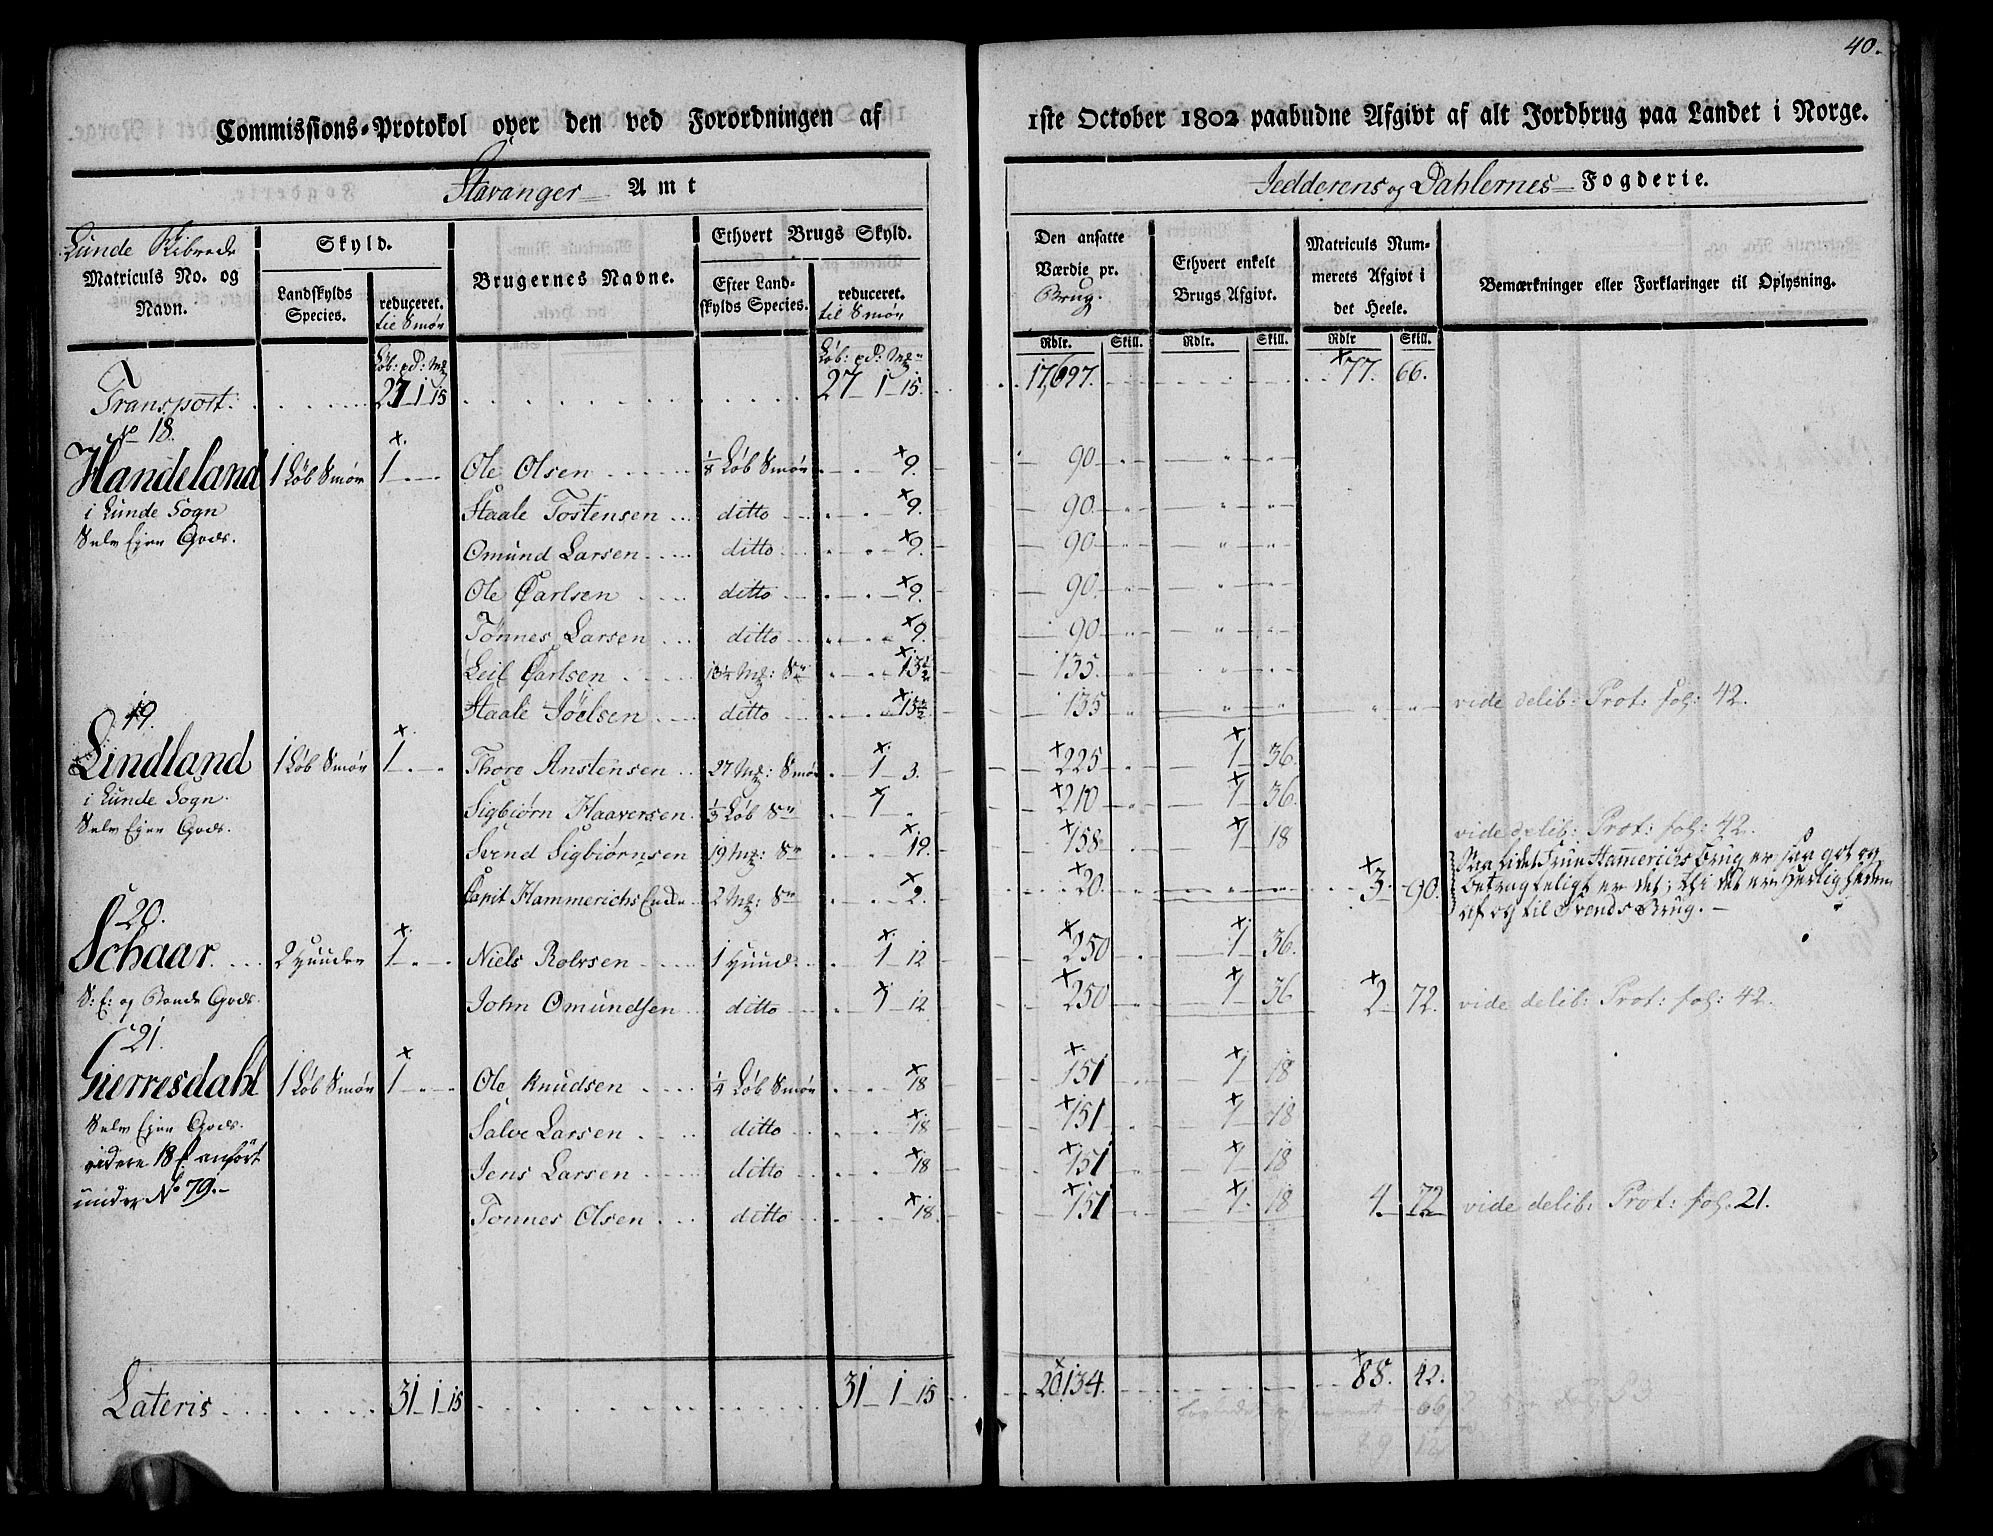 40.
Commissions-Protokol over den ved Forordningen af 1ste October 1802 paabudne Afgivt af alt Jordbrug paa Landet i Norge.
Stavanger Amt
Jedderens og Dahlernes Fogderie.
Lunde Skibrede
Matriculs No. og Navn.
Skyld.
Landskylds Species.
reduceret.
til Smør
Brugernes Navne.
Ethvert Brugs Skyld.
Efter Landskylds Species.
reduceret.
til Smør
Den ansatte Værdie pr. Brug.
Ethvert enkelt Brugs Afgivt.
Matriculs Nummerets Afgivt i det Heele.
Bemærkninger eller Forklaringer til Oplysning.
Løb: pd: Mk Løb: pd: Mk Rdlr. Skill. Rdlr. Skill. Rdlr Skill.
Transport. 27 1 15 27 1 15. 17,697. 77. 66.
No 18.
Handeland 1 Løb Smør 1 Ole Olsen 1/8 Løb Smør 9. 90
i Lunde Sogn Staale Tostensen ditto 9. 90
Selv Ejer Gods. Omund Larsen ditto 9. 90
Ole Carlsen ditto 9. 90
Tønnes Larsen ditto 9. 90
Leil Carlsen 13½ Mk: Sr 13½ 135.
Staale Jöelsen ditto 13½ 135 vide delib: Prot: fol: 42.
19.
Lindland 1 Løb Smør 1 Thore Anstensen 27 Mk: Smør 1 3. 225 1 36
i Lunde Sogn. Sigbiørn Haaversen 1/3 Løb Sr 1 210 1 36.
Selv Ejer Gods. Svend Sigbiørnsen 19 Mk: Sr 19. 158 1 18 vide delib: Prot: fol: 42.
Capit Hammerichs Enke 2 Mk: Sr 2. 20. 3. 90. Saa lidet Frue Hamerichs Brug er saa got og
betragteligt er det; thi det er Herligheden
af og til Svends Brug.
20.
Schaar 2 Huuder 1 Niels Rolvsen 1 Huud: 1 12 250 1 36.
S: E: og Bonde Gods. John Omundsen ditto 1 12 250 1 36 2 72. vide delib: Prot: fol: 42.
21.
Gierresdahl 1 Løb Smør 1 Ole Knudsen 1/4 Løb Smør 18 151 1 18
Selv Ejer Gods. Salve Larsen ditto 18 151 1 18
videre 18 f. anført Jens Larsen ditto 18 151 1 18
under No 79. Tonnes Olsen ditto 18. 151 1. 18 4 72 vide delib: Prot: fol. 21.
Lateris 31 1 15 31 1 15 20134. 88. 42.
66
89 12